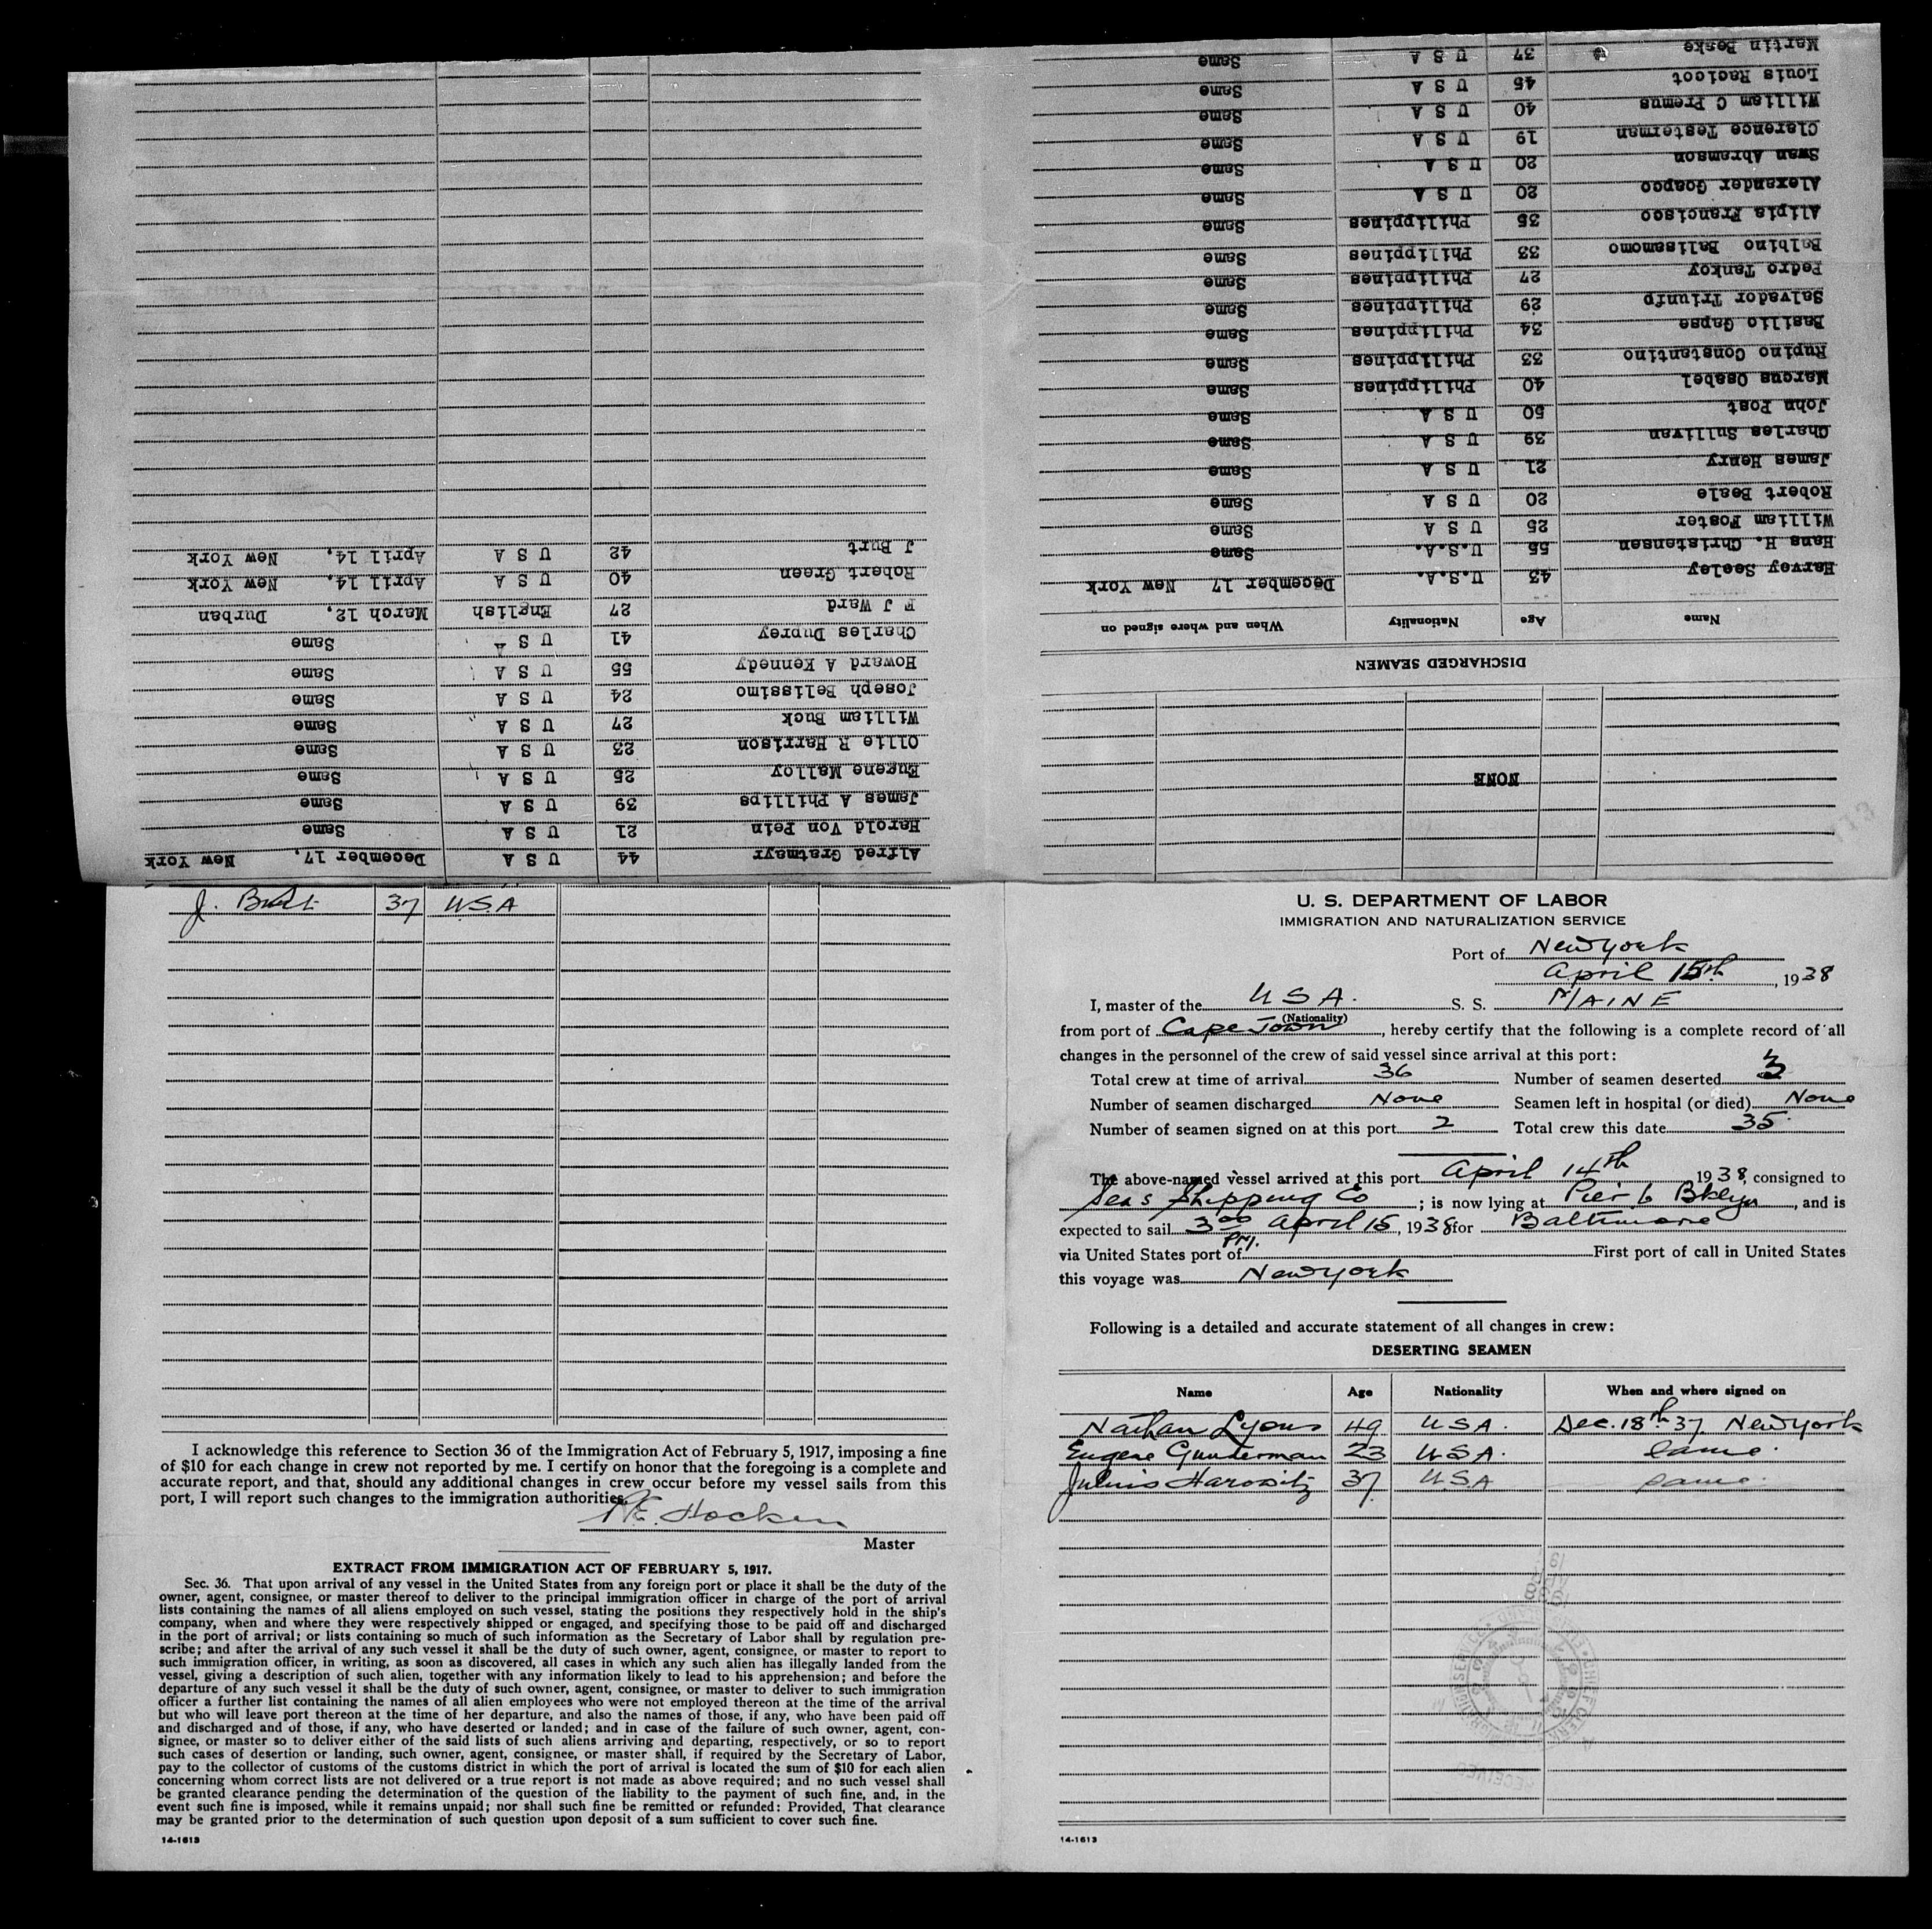 NONE
DISCHARGED SEAMEN
Name Age Nationality When and where signed on
Harvey Seeley 43 U.S.A. December 17 New York
Hans H. Christensen 55 U.S.A. Same
William Foster 25 U S A Same
Robert Beale 20 U S A Same
James Henry 21 U S A Same
Charles Sullivan 39 U S A Same
John Post 50 U S A Same
Marcus Osabel 40 Philippines Same
Rupino Constantino 33 Philippines Same
Basilio Gapse 34 Philippines Same
Salvador Triunfp 29 Philippines Same
Pedro Tankoy 27 Philippines Same
Balbino Balisamomo 33 Philippines Same
Alipia Francisco 35 Philippines Same
Alexander Goapco 20 U S A Same
Swan Abramson 20 U S A Same
Clarence Testerman 19 U S A Same
William C Premus 40 U S A Same
Louis Racicot 45 U S A Same
Martin Beske 37 U S A Same
Alfred Gratmayr 44 U S A December 17, New York
Harold Von Pein 21 U S A Same
James A Phillips 39 U S A Same
Eugene Malloy 25 U S A Same
Ollie R Harrison 23 U S A Same
William Buck 27 U S A Same
Joseph Belissimo 24 U S A Same
Howard A Kennedy 55 U S A Same
Charles Duprey 41 U S A Same
F J Ward 27 English March 12, Durban
Robert Green 40 U S A April 14, New York
J Burt 42 U S A April 14, New York
J. 37 U.S.A
I acknowledge this reference to Section 36 of the Immigration Act of February 5, 1917, imposing a fine
of $10 for each change in crew not reported by me. I certify on honor that the foregoing is a complete and
accurate report, and that, should any additional changes in crew occur before my vessel sails from this
port, I will report such changes to the immigration authorities.
Hocken
Master
EXTRACT FROM IMMIGRATION ACT OF FEBRUARY 5, 1917.
Sec. 36. That upon arrival of any vessel in the United States from any foreign port or place it shall be the duty of the
owner, agent, consignee, or master thereof to deliver to the principal immigration officer in charge of the port of arrival
lists containing the names of all aliens employed on such vessel, stating the positions they respectively hold in the ship's
company, when and where they were respectively shipped or engaged, and specifying those to be paid off and discharged
in the port of arrival; or lists containing so much of such information as the Secretary of Labor shall by regulation pre-
scribe; and after the arrival of any such vessel it shall be the duty of such owner, agent, consignee, or master to report to
such immigration officer, in writing, as soon as discovered, all cases in which any such alien has illegally landed from the
vessel, giving a description of such alien, together with any information likely to lead to his apprehension; and before the
departure of any such vessel it shall be the duty of such owner, agent, consignee, or master to deliver to such immigration
officer a further list containing the names of all alien employees who were not employed thereon at the time of the arrival
but who will leave port thereon at the time of her departure, and also the names of those, if any, who have been paid off
and discharged and of those, if any, who have deserted or landed; and in case of the failure of such owner, agent, con-
signee, or master so to deliver either of the said lists of such aliens arriving and departing, respectively, or so to report
such cases of desertion or landing, such owner, agent, consignee, or master shall, if required by the Secretary of Labor,
pay to the collector of customs of the customs district in which the port of arrival is located the sum of $10 for each alien
concerning whom correct lists are not delivered or a true report is not made as above required; and no such vessel shall
be granted clearance pending the determination of the question of the liability to the payment of such fine, and, in the
event such fine is imposed, while it remains unpaid; nor shall such fine be remitted or refunded: Provided, That clearance
may be granted prior to the determination of such question upon deposit of a sum sufficient to cover such fine.
14-1613
U. S. DEPARTMENT OF LABOR
IMMIGRATION AND NATURALIZATION SERVICE
Port of New York
April 15th, 1938
I, master of the U S A. S. S. MAINE
(Nationality)
from port of Cape Town, hereby certify that the following is a complete record of all
changes in the personnel of the crew of said vessel since arrival at this port:
Total crew at time of arrival 36 Number of seamen deserted 3
Number of seamen discharged None Seamen left in hospital (or died) None
Number of seamen signed on at this port 2 Total crew this date 35
The above-named vessel arrived at this port April 14th 1938, consigned to
Seas Shipping Co; is now lying at Pier 6 Bklyn, and is
expected to sail 3 00 PM. April 15, 1938 for Baltimore
via United States port of First port of call in United States
this voyage was New York
Following is a detailed and accurate statement of all changes in crew:
DESERTING SEAMEN
Name Age Nationality When and where signed on
Nathan Lyons 49 U S A. Dec. 18th 37. New York
Eugene Gunderman 23 U S A. Same
Julius Harowitz 37 U S A Same
RECEIVED
14-1613